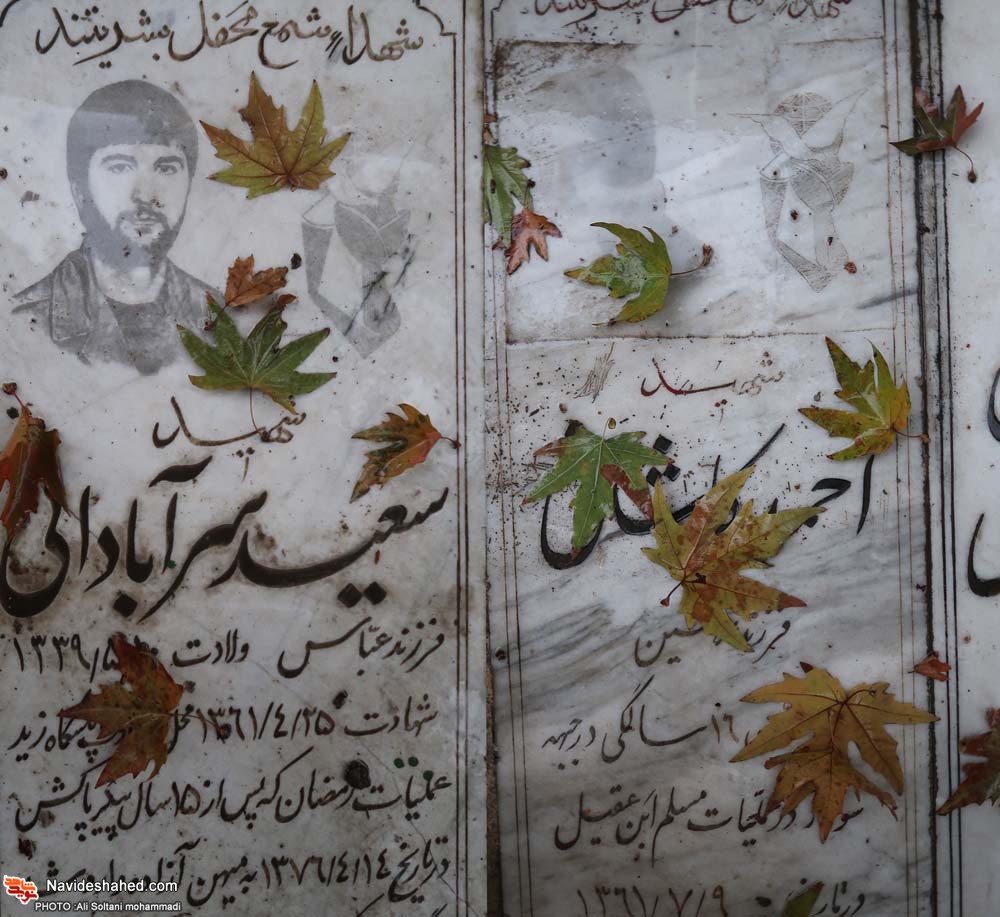 شهدا شمع محفل بشریتند
شهید
سعید سرآبادانی
فرزند عباس ولادت ۱۳۳۹/۵
شهادت ۱۳۶۱/۴/۲۵ پاسگاه زید
عملیات رمضان که پس از ۱۵ سال پیکر پاکش
در تاریخ ۱۳۷۶/۴/۱۴ به میهن
شهدا شمع محفل بشریتند
شهید
احمد
فرزند
۱۶ سالگی در جبهه
سومار در عملیات مسلم ابن عقیل
۱۳۶۱/۷/۹
Navideshahed.com
PHOTO :Ali Soltani mohammadi